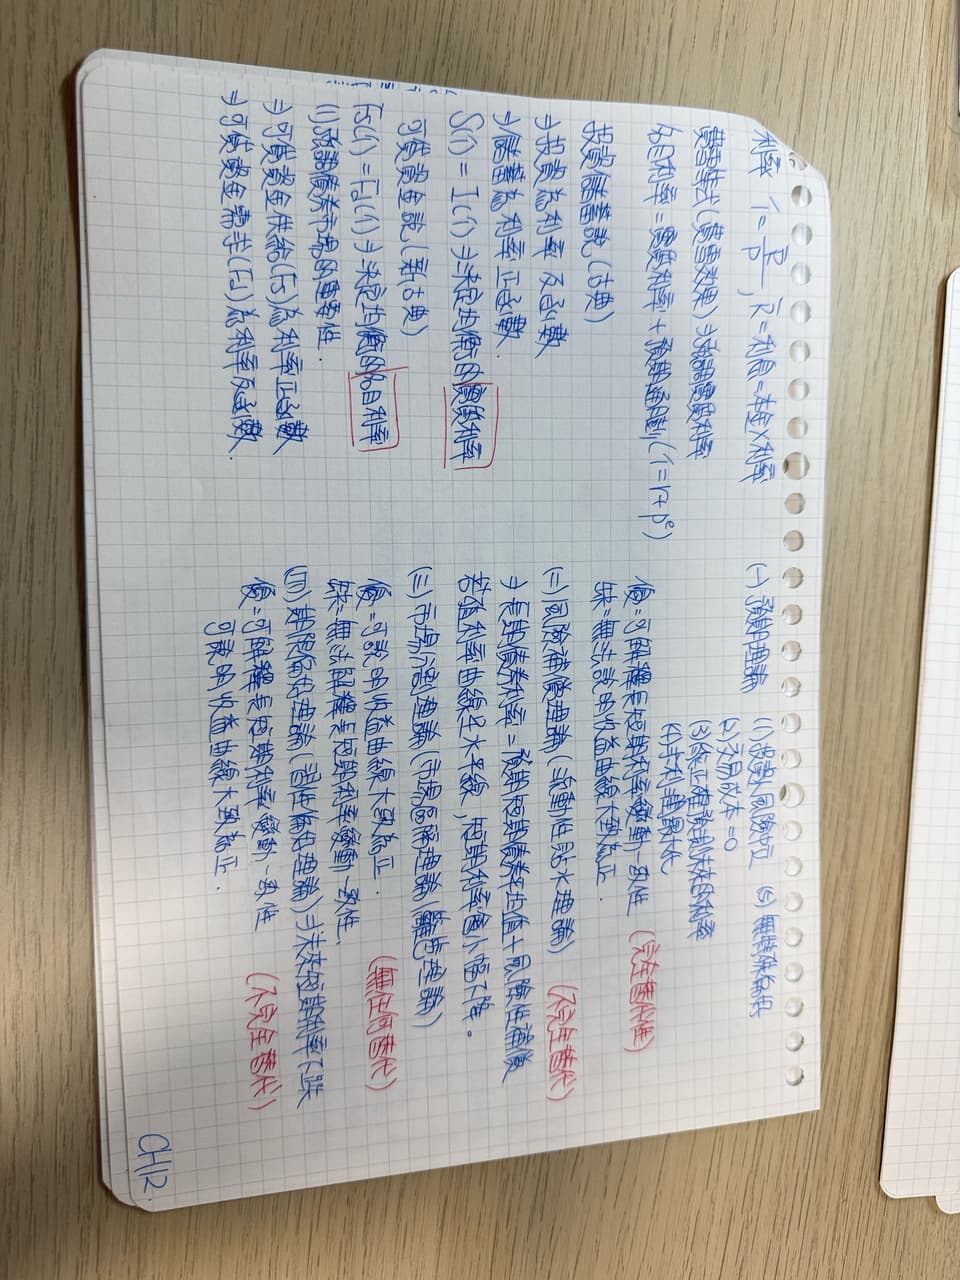 利率 i = R/P , R = 利息 = 本金×利率
費雪方程式(費雪效果) ⇒ 強調實質利率
名目利率 = 實質利率 + 預期通膨 (i = r + pᵉ)
投資儲蓄說 (古典)
⇒ 投資為利率反函數
⇒ 儲蓄為利率正函數.
S(r) = I(r) ⇒ 決定均衡的實質利率
可貸資金說 (新古典)
Fs(i) = Fd(i) ⇒ 決定均衡的名目利率
(1) 強調債券市場的重要性.
⇒ 可貸資金供給(Fs)為利率正函數
⇒ 可貸資金需求(Fd)為利率反函數.
(一) 預期理論 (1) 投資人風險中立 (5) 無特殊偏好
(2) 交易成本 = 0
(3) 能正確預期未來的利率
(4) 追求利益最大化
優 = 可解釋長短期利率變動一致性 (完全替代性)
缺 = 無法說明收益曲線大致為正.
(二) 風險補償理論 (流動性貼水理論) (不完全替代)
⇒ 長期債券利率 = 預期短期債券平均值 + 風險性補償
若殖利率曲線呈水平線,短期利率會小幅下降。
(三) 市場分割理論 (市場區隔理論) (隔離理論)
優 = 可說明收益曲線大致為正. (無任何替代)
缺 = 無法解釋長短期利率變動一致性.
(四) 期限偏好理論 (習性偏好理論) ⇒ 未來短期利率下跌
優 = 可解釋長短期利率變動一致性 (不完全替代)
可說明收益曲線大致為正.
CH12